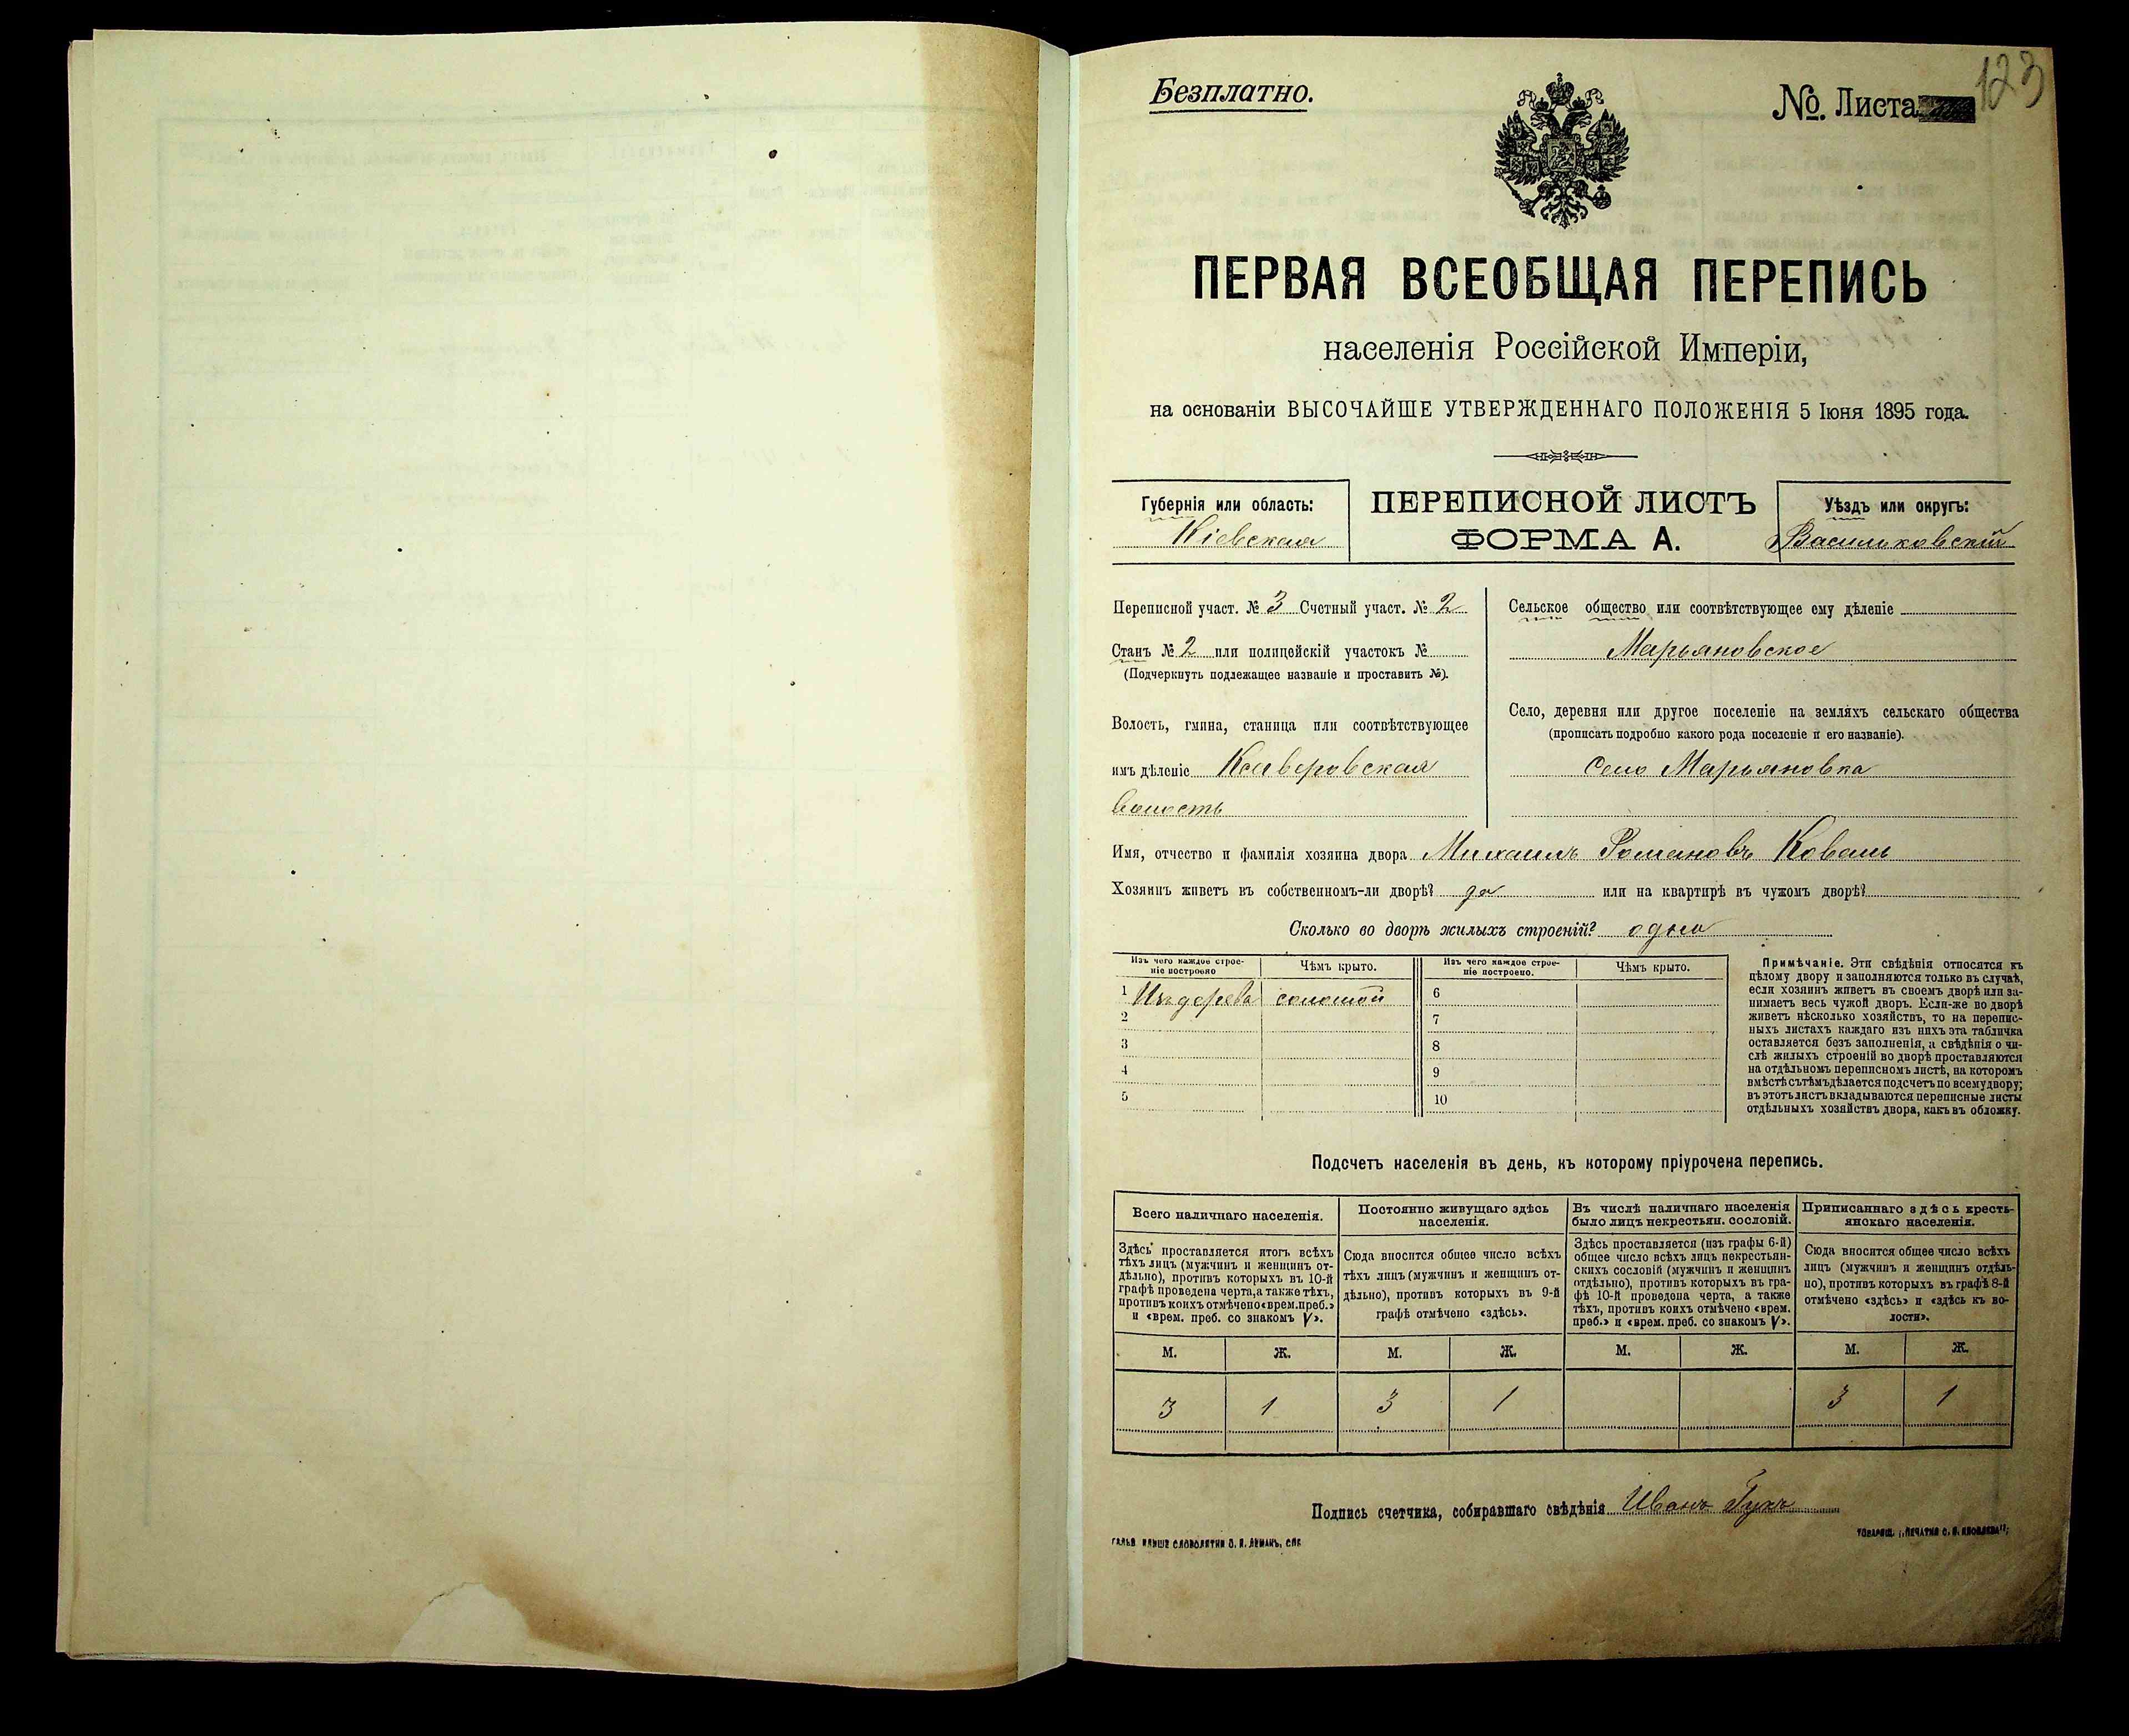 Безплатно.
№. Листа
123
ПЕРВАЯ ВСЕОБЩАЯ ПЕРЕПИСЬ
населенія Россійской Имперіи,
на основаніи ВЫСОЧАЙШЕ УТВЕРЖДЕННАГО ПОЛОЖЕНІЯ 5 Іюня 1895 года.
Губернія или область:
Кіевская
ПЕРЕПИСНОЙ ЛИСТЪ
ФОРМА А.
Уѣздъ или округъ:
Васильковскій
Переписной участ. № 3 Счетный участ. № 2
Станъ № 2 или полицейскій участокъ №
(Подчеркнуть подлежащее названіе и проставить №).
Волость, гмина, станица или соотвѣтствующее
имъ дѣленіе Ксаверовская
волость
Сельское общество или соотвѣтствующее ему дѣленіе
Марьяновское
Село, деревня или другое поселеніе на земляхъ сельскаго общества
(прописать подробно какого рода поселеніе и его названіе).
Село Марьяновка
Имя, отчество и фамилія хозяина двора Михаилъ Романовъ Коваль
Хозяинъ живетъ въ собственномъ-ли дворѣ? да или на квартирѣ въ чужомъ дворѣ?
Сколько во дворѣ жилыхъ строеній? одно
Изъ чего каждое строе-
ніе построено
Чѣмъ крыто.
Изъ чего каждое строе-
ніе построено.
Чѣмъ крыто.
1 Изъ дерева соломой
2
3
4
5
6
7
8
9
10
Примѣчаніе. Эти свѣдѣнія относятся къ
цѣлому двору и заполняются только въ случаѣ,
если хозяинъ живетъ въ своемъ дворѣ или за-
нимаетъ весь чужой дворъ. Если-же во дворѣ
живетъ нѣсколько хозяйствъ, то на перепис-
ныхъ листахъ каждаго изъ нихъ эта табличка
оставляется безъ заполненія, а свѣдѣнія о чи-
слѣ жилыхъ строеній во дворѣ проставляются
на отдѣльномъ переписномъ листѣ, на которомъ
вмѣстѣ съ тѣмъ дѣлается подсчетъ по всему двору;
въ этотъ листъ вкладываются переписные листы
отдѣльныхъ хозяйствъ двора, какъ въ обложку.
Подсчетъ населенія въ день, къ которому пріурочена перепись.
Всего наличнаго населенія.
Здѣсь проставляется итогъ всѣхъ
тѣхъ лицъ (мужчинъ и женщинъ от-
дѣльно), противъ которыхъ въ 10-й
графѣ проведена черта, а также тѣхъ,
противъ коихъ отмѣчено «врем. преб.»
и «врем. преб. со знакомъ V».
Постоянно живущаго здѣсь
населенія.
Сюда вносится общее число всѣхъ
тѣхъ лицъ (мужчинъ и женщинъ от-
дѣльно), противъ которыхъ въ 9-й
графѣ отмѣчено «здѣсь».
Въ числѣ наличнаго населенія
было лицъ некрестьян. сословій.
Здѣсь проставляется (изъ графы 6-й)
общее число всѣхъ лицъ некрестьян-
скихъ сословій (мужчинъ и женщинъ
отдѣльно), противъ которыхъ въ гра-
фѣ 10-й проведена черта, а также
тѣхъ, противъ коихъ отмѣчено «врем.
преб.» и «врем. преб. со знакомъ V».
Приписаннаго здѣсь кресть-
янскаго населенія.
Сюда вносится общее число всѣхъ
лицъ (мужчинъ и женщинъ отдѣль-
но), противъ которыхъ въ графѣ 8-й
отмѣчено «здѣсь» и «здѣсь къ во-
лости».
М. Ж. М. Ж. М. Ж. М. Ж.
3 1 3 1 3 1
Подпись счетчика, собиравшаго свѣдѣнія Иванъ Гукъ
СЛОВОЛИТНИ О. И. ЛЕМАНЪ, СПБ
ТОВАРИЩ. „ПЕЧАТНЯ С. П. ЯКОВЛЕВА“;